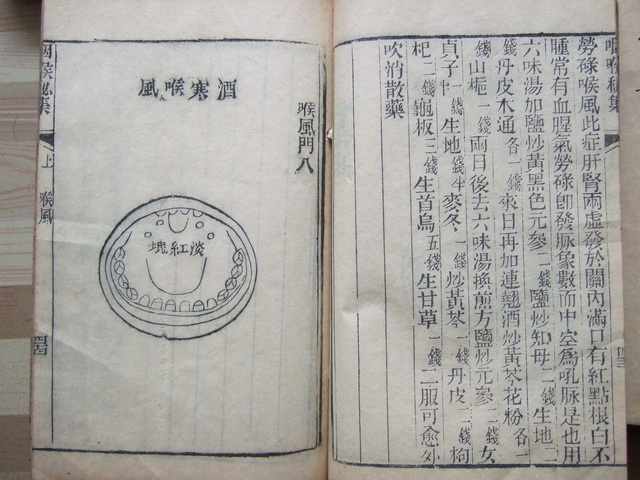 咽喉秘集
勞碌喉風此症肝腎兩虛發於關內滿口有紅點根白不
腫常有血腥氣勞碌卽發脉象數而中空爲芤脉是也用
六味湯加鹽炒黃黑色元參二錢鹽炒知母二錢生地三
錢丹皮木通各一錢來日再加連翹酒炒黃芩花粉各一
錢山梔一錢兩日後去六味湯換煎方鹽炒元參二錢女
貞子一錢生地半麥冬一錢炒黃芩一錢丹皮一錢枸
杞二錢龜板三錢生首烏五錢生甘草一錢二服可愈外
吹悄散藥
喉風門八
酒寒喉風
淡紅塊
咽喉秘集
上
喉風